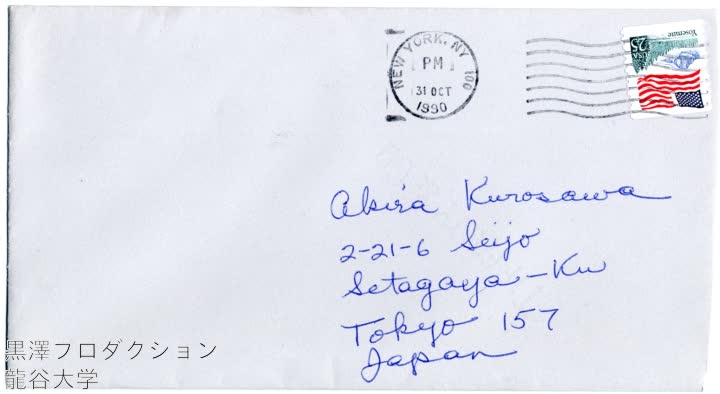 NEW YORK, NY 100
PM
31 OCT
1990
Yosemite
USA
25
Akira Kurosawa
2-21-6 Seijo
Setagaya-Ku
Tokyo 157
Japan
黒澤フロダクション
龍谷大学